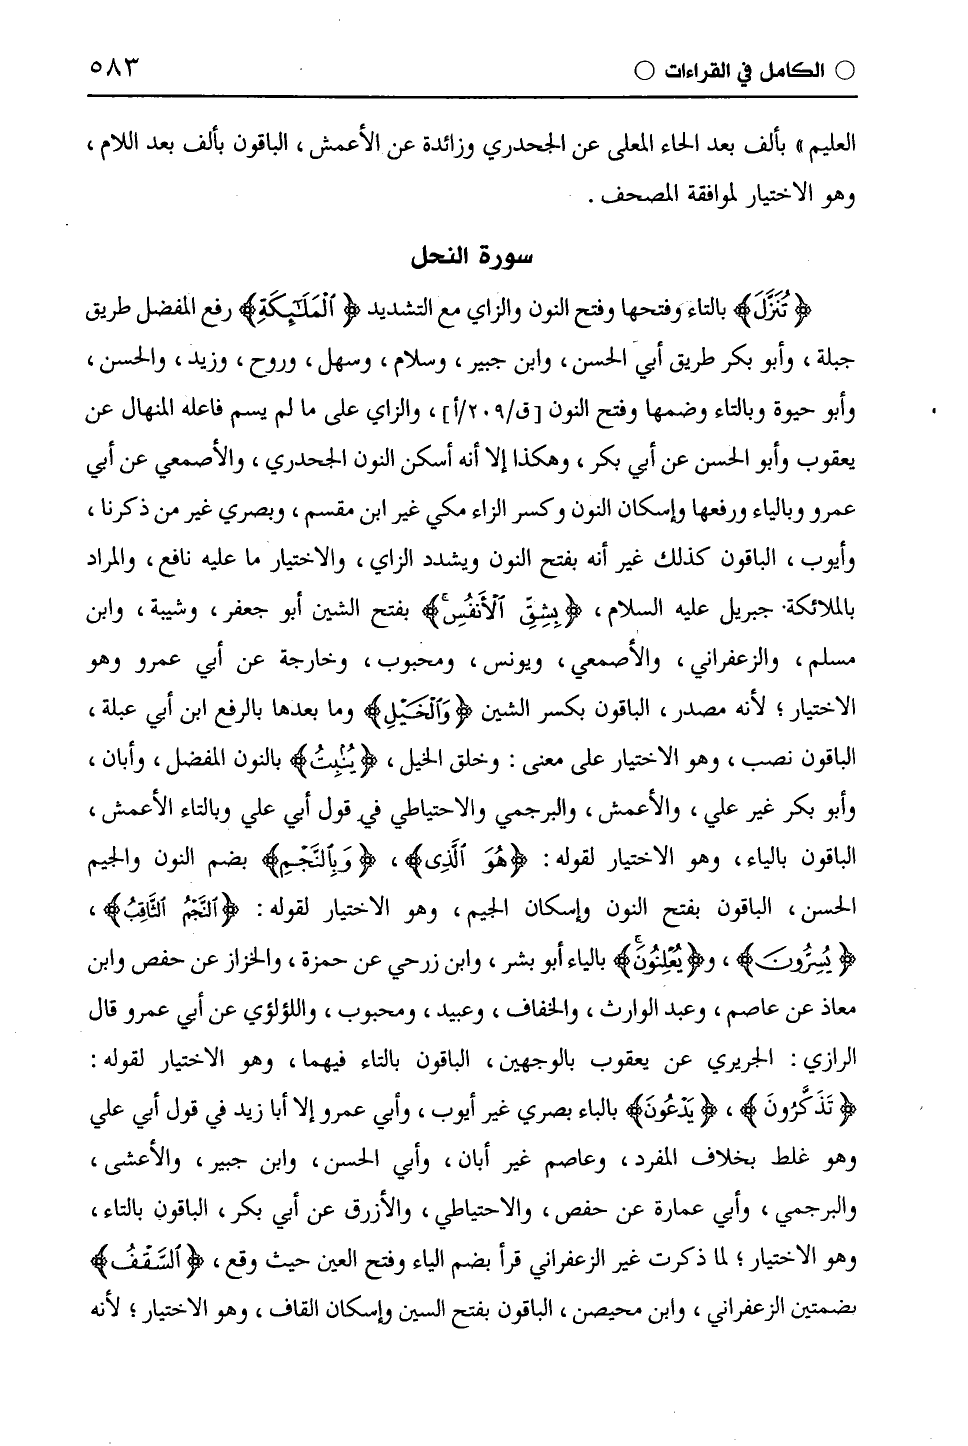 ○ الكامل في القراءات ○ ٥٨٣
العليم » بألف بعد الحاء المعلى عن الجحدري وزائدة عن الأعمش ، الباقون بألف بعد اللام ،
وهو الاختيار لموافقة المصحف .
سورة النحل
﴿ تُنَزَّلَ ﴾ بالتاء وفتحها وفتح النون والزاي مع التشديد ﴿ ٱلْمَلَٰٓئِكَةِ ﴾ رفع المفضل طريق
جبلة ، وأبو بكر طريق أبي الحسن ، وابن جبير ، وسلام ، وسهل ، وروح ، وزيد ، والحسن ،
وأبو حيوة وبالتاء وضمها وفتح النون [ق/٢٠٩/أ] ، والزاي على ما لم يسم فاعله المنهال عن
يعقوب وأبو الحسن عن أبي بكر ، وهكذا إلا أنه أسكن النون الجحدري ، والأصمعي عن أبي
عمرو وبالياء ورفعها وإسكان النون وكسر الزاء مكي غير ابن مقسم ، وبصري غير من ذكرنا ،
وأيوب ، الباقون كذلك غير أنه بفتح النون ويشدد الزاي ، والاختيار ما عليه نافع ، والمراد
بالملائكة جبريل عليه السلام ، ﴿ بِشِقِّ ٱلْأَنفُسِ ۚ ﴾ بفتح الشين أبو جعفر ، وشيبة ، وابن
مسلم ، والزعفراني ، والأصمعي ، ويونس ، ومحبوب ، وخارجة عن أبي عمرو وهو
الاختيار ؛ لأنه مصدر ، الباقون بكسر الشين ﴿ وَٱلْخَيْلِ ﴾ وما بعدها بالرفع ابن أبي عبلة ،
الباقون نصب ، وهو الاختيار على معنى : وخلق الخيل ، ﴿ يُنۢبِتُ ﴾ بالنون المفضل ، وأبان ،
وأبو بكر غير علي ، والأعمش ، والبرجمي والاحتياطي في قول أبي علي وبالتاء الأعمش ،
الباقون بالياء ، وهو الاختيار لقوله : ﴿ هُوَ ٱلَّذِى ﴾ ، ﴿ وَبِٱلنَّجْمِ ﴾ بضم النون والجيم
الحسن ، الباقون بفتح النون وإسكان الجيم ، وهو الاختيار لقوله : ﴿ ٱلنَّجْمُ ٱلثَّاقِبُ ﴾ ،
﴿ يُسِرُّونَ ﴾ ، و﴿ يُعْلِنُونَ ۚ ﴾ بالياء أبو بشر ، وابن زرحي عن حمزة ، والخزاز عن حفص وابن
معاذ عن عاصم ، وعبد الوارث ، والخفاف ، وعبيد ، ومحبوب ، واللؤلؤي عن أبي عمرو قال
الرازي : الجريري عن يعقوب بالوجهين ، الباقون بالتاء فيهما ، وهو الاختيار لقوله :
﴿ تَذَكَّرُونَ ﴾ ، ﴿ يَدْعُونَ ﴾ بالياء بصري غير أيوب ، وأبي عمرو إلا أبا زيد في قول أبي علي
وهو غلط بخلاف المفرد ، وعاصم غير أبان ، وأبي الحسن ، وابن جبير ، والأعشى ،
والبرجمي ، وأبي عمارة عن حفص ، والاحتياطي ، والأزرق عن أبي بكر ، الباقون بالتاء ،
وهو الاختيار ؛ لما ذكرت غير الزعفراني قرأ بضم الياء وفتح العين حيث وقع ، ﴿ ٱلسَّقْفُ ﴾
بضمتين الزعفراني ، وابن محيصن ، الباقون بفتح السين وإسكان القاف ، وهو الاختيار ؛ لأنه